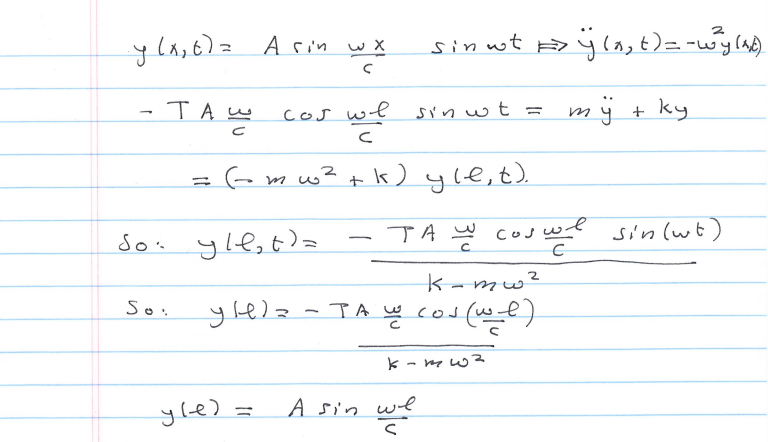 y(x,t) = A sin ωx/c sin ωt ⟹ ÿ(x,t) = -ω²y(x,t)
- T A ω/c cos ωℓ/c sin ωt = mÿ + ky
= (- m ω² + k) y(ℓ,t).
So: y(ℓ,t) = - TA ω/c cos ωℓ/c sin(ωt) / k - mω²
So: y(ℓ) = - TA ω/c cos(ωℓ/c) / k - mω²
y(ℓ) = A sin ωℓ/c